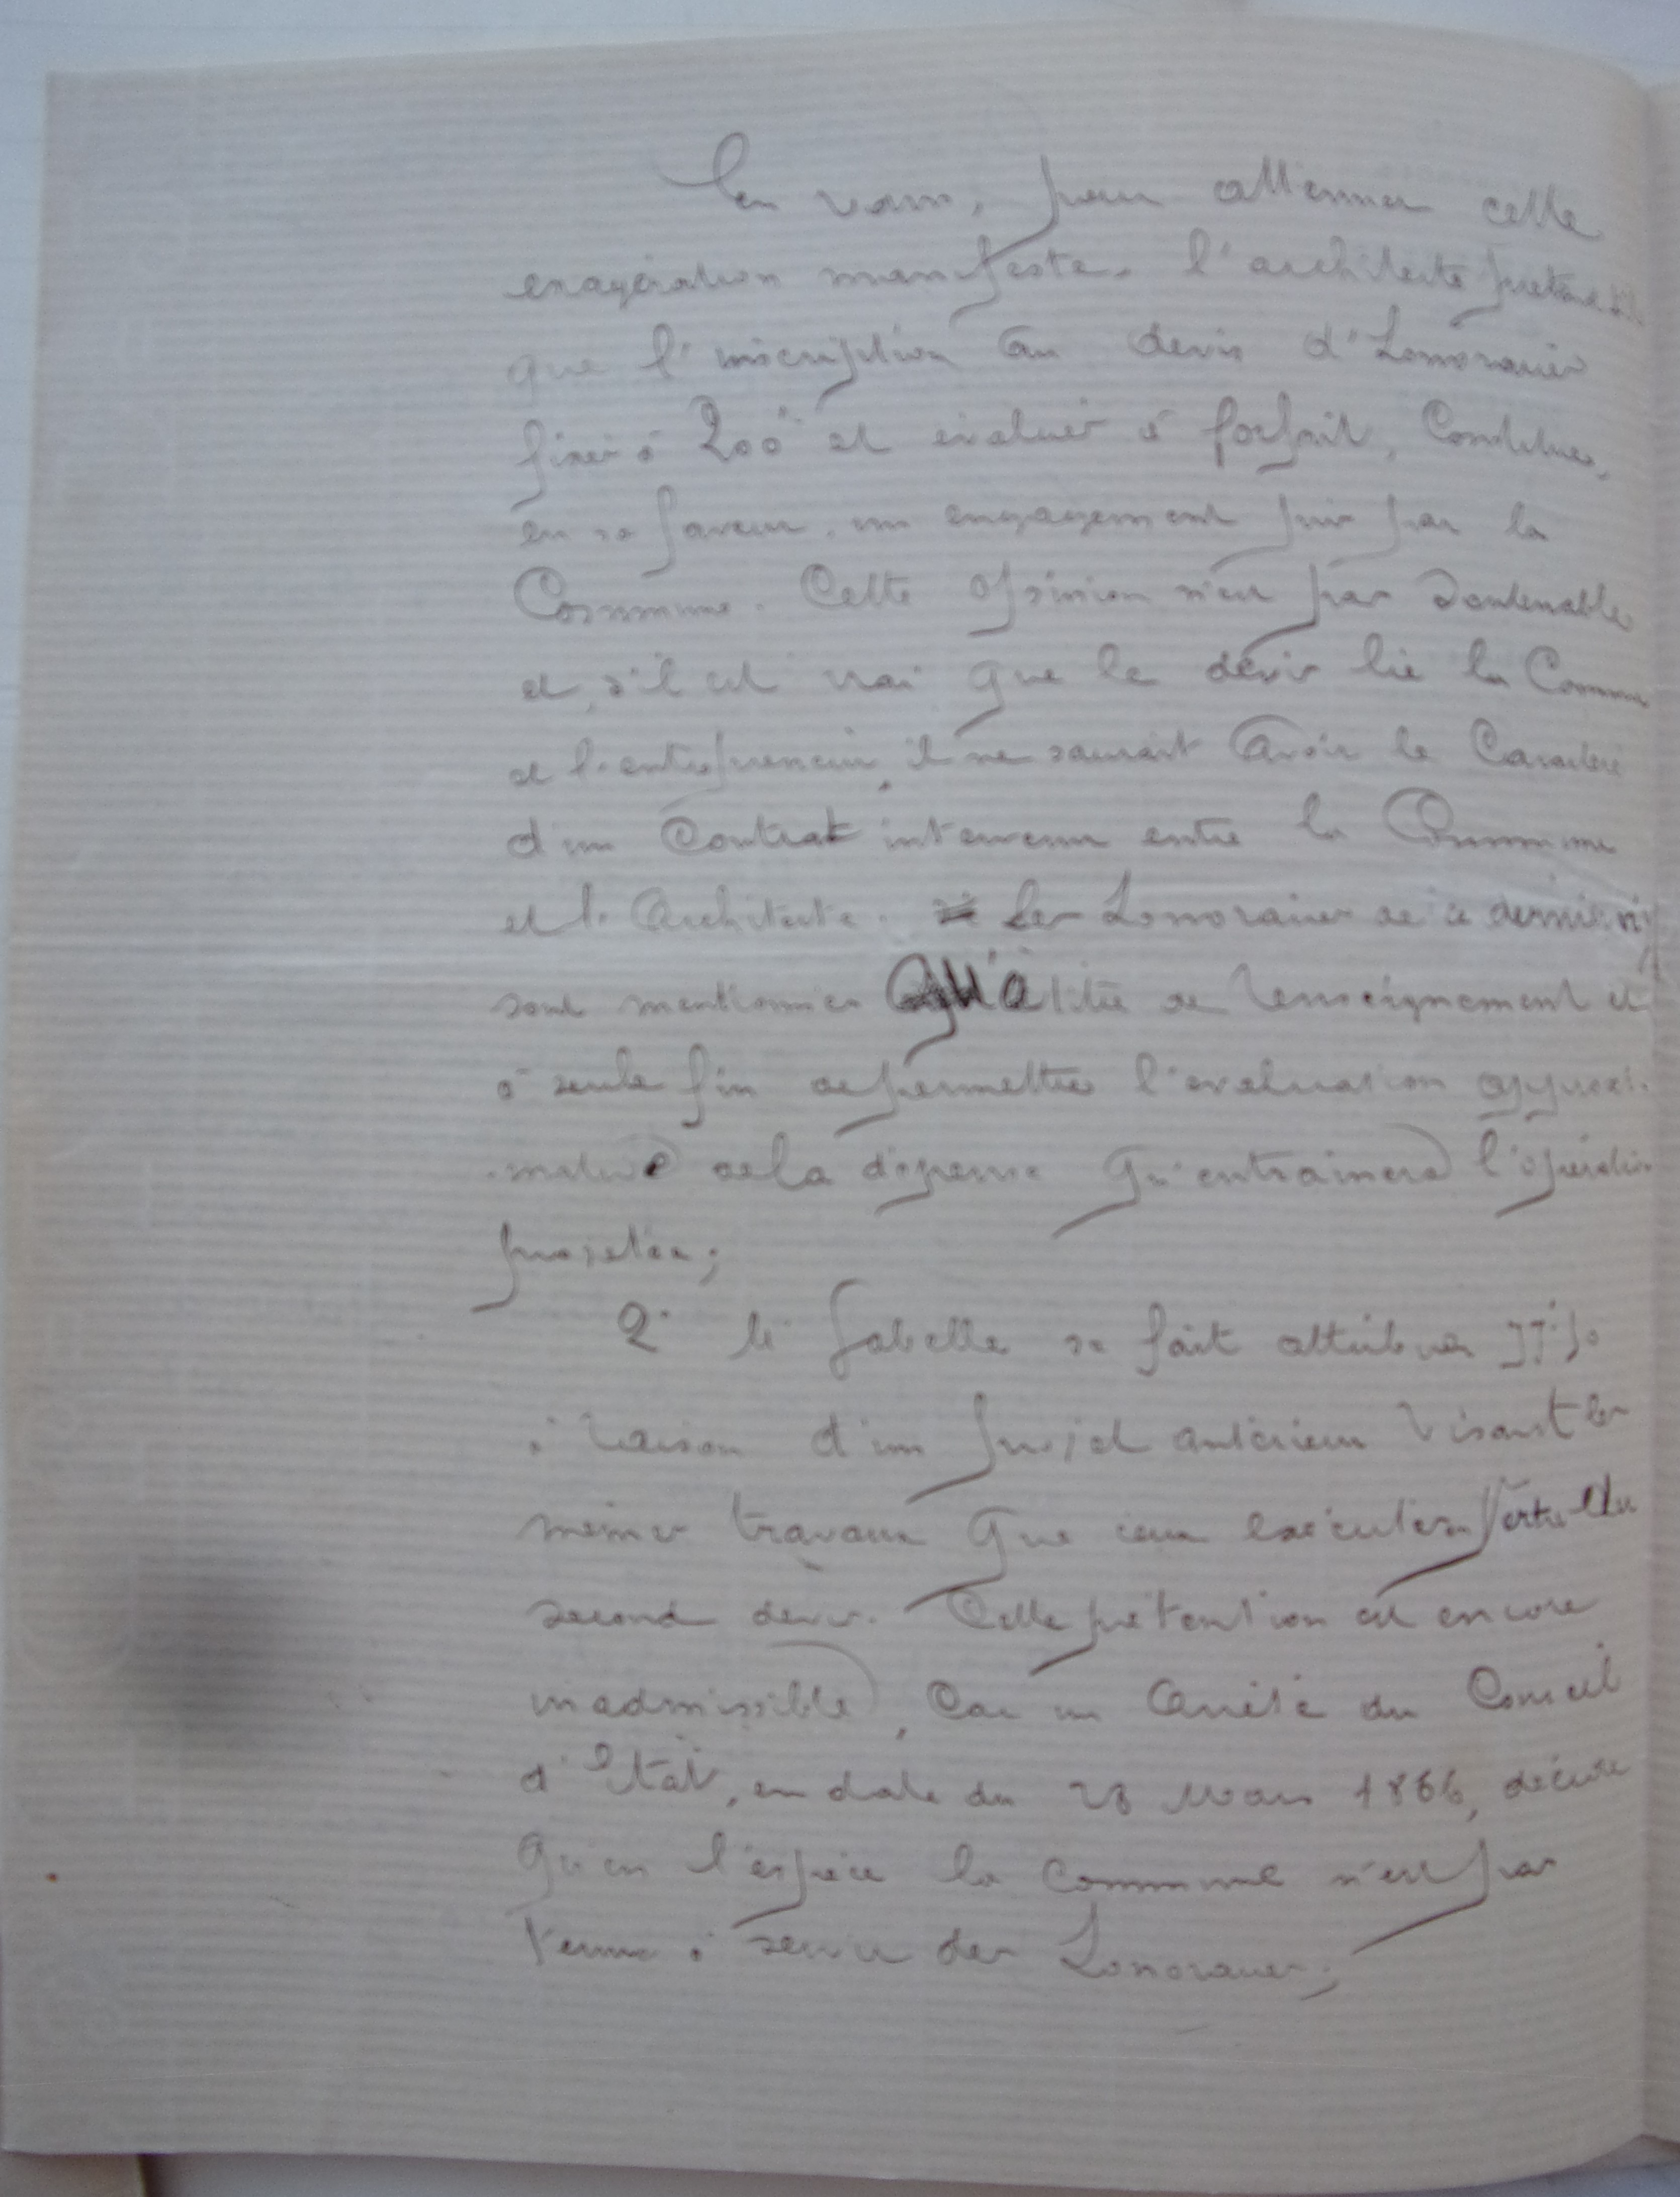 En vain, pour atténuer cette
exagération manifeste, l'architecte prétend-il
que l'inscription au devis d'honoraires
fixés à 200f et évalués à forfait, constitue,
en sa faveur, un engagement pris par la
Commune. Cette opinion n'est pas soutenable
et, s'il est vrai que le devis lie la Commune
et l'entrepreneur, il ne saurait avoir le Caractère
d'un Contrat intervenu entre la Commune
et l'Architecte. Les honoraires de ce dernier n'y
sont mentionnés qu'à titre de renseignement et
à seule fin de permettre l'évaluation approxi-
-mative de la dépense qu'entrainera l'opération
projetée;
2° Mr Gabelle se fait attribuer
à raison d'un projet antérieur visant les
mêmes travaux que ceux exécutés en vertu du
second devis. Cette prétention est encore
inadmissible, car un Arrêté du Conseil
d'Etat, en date du 23 Mars 1866, déclare
qu'en l'espèce la commune n'est pas
tenue à servir des honoraires;